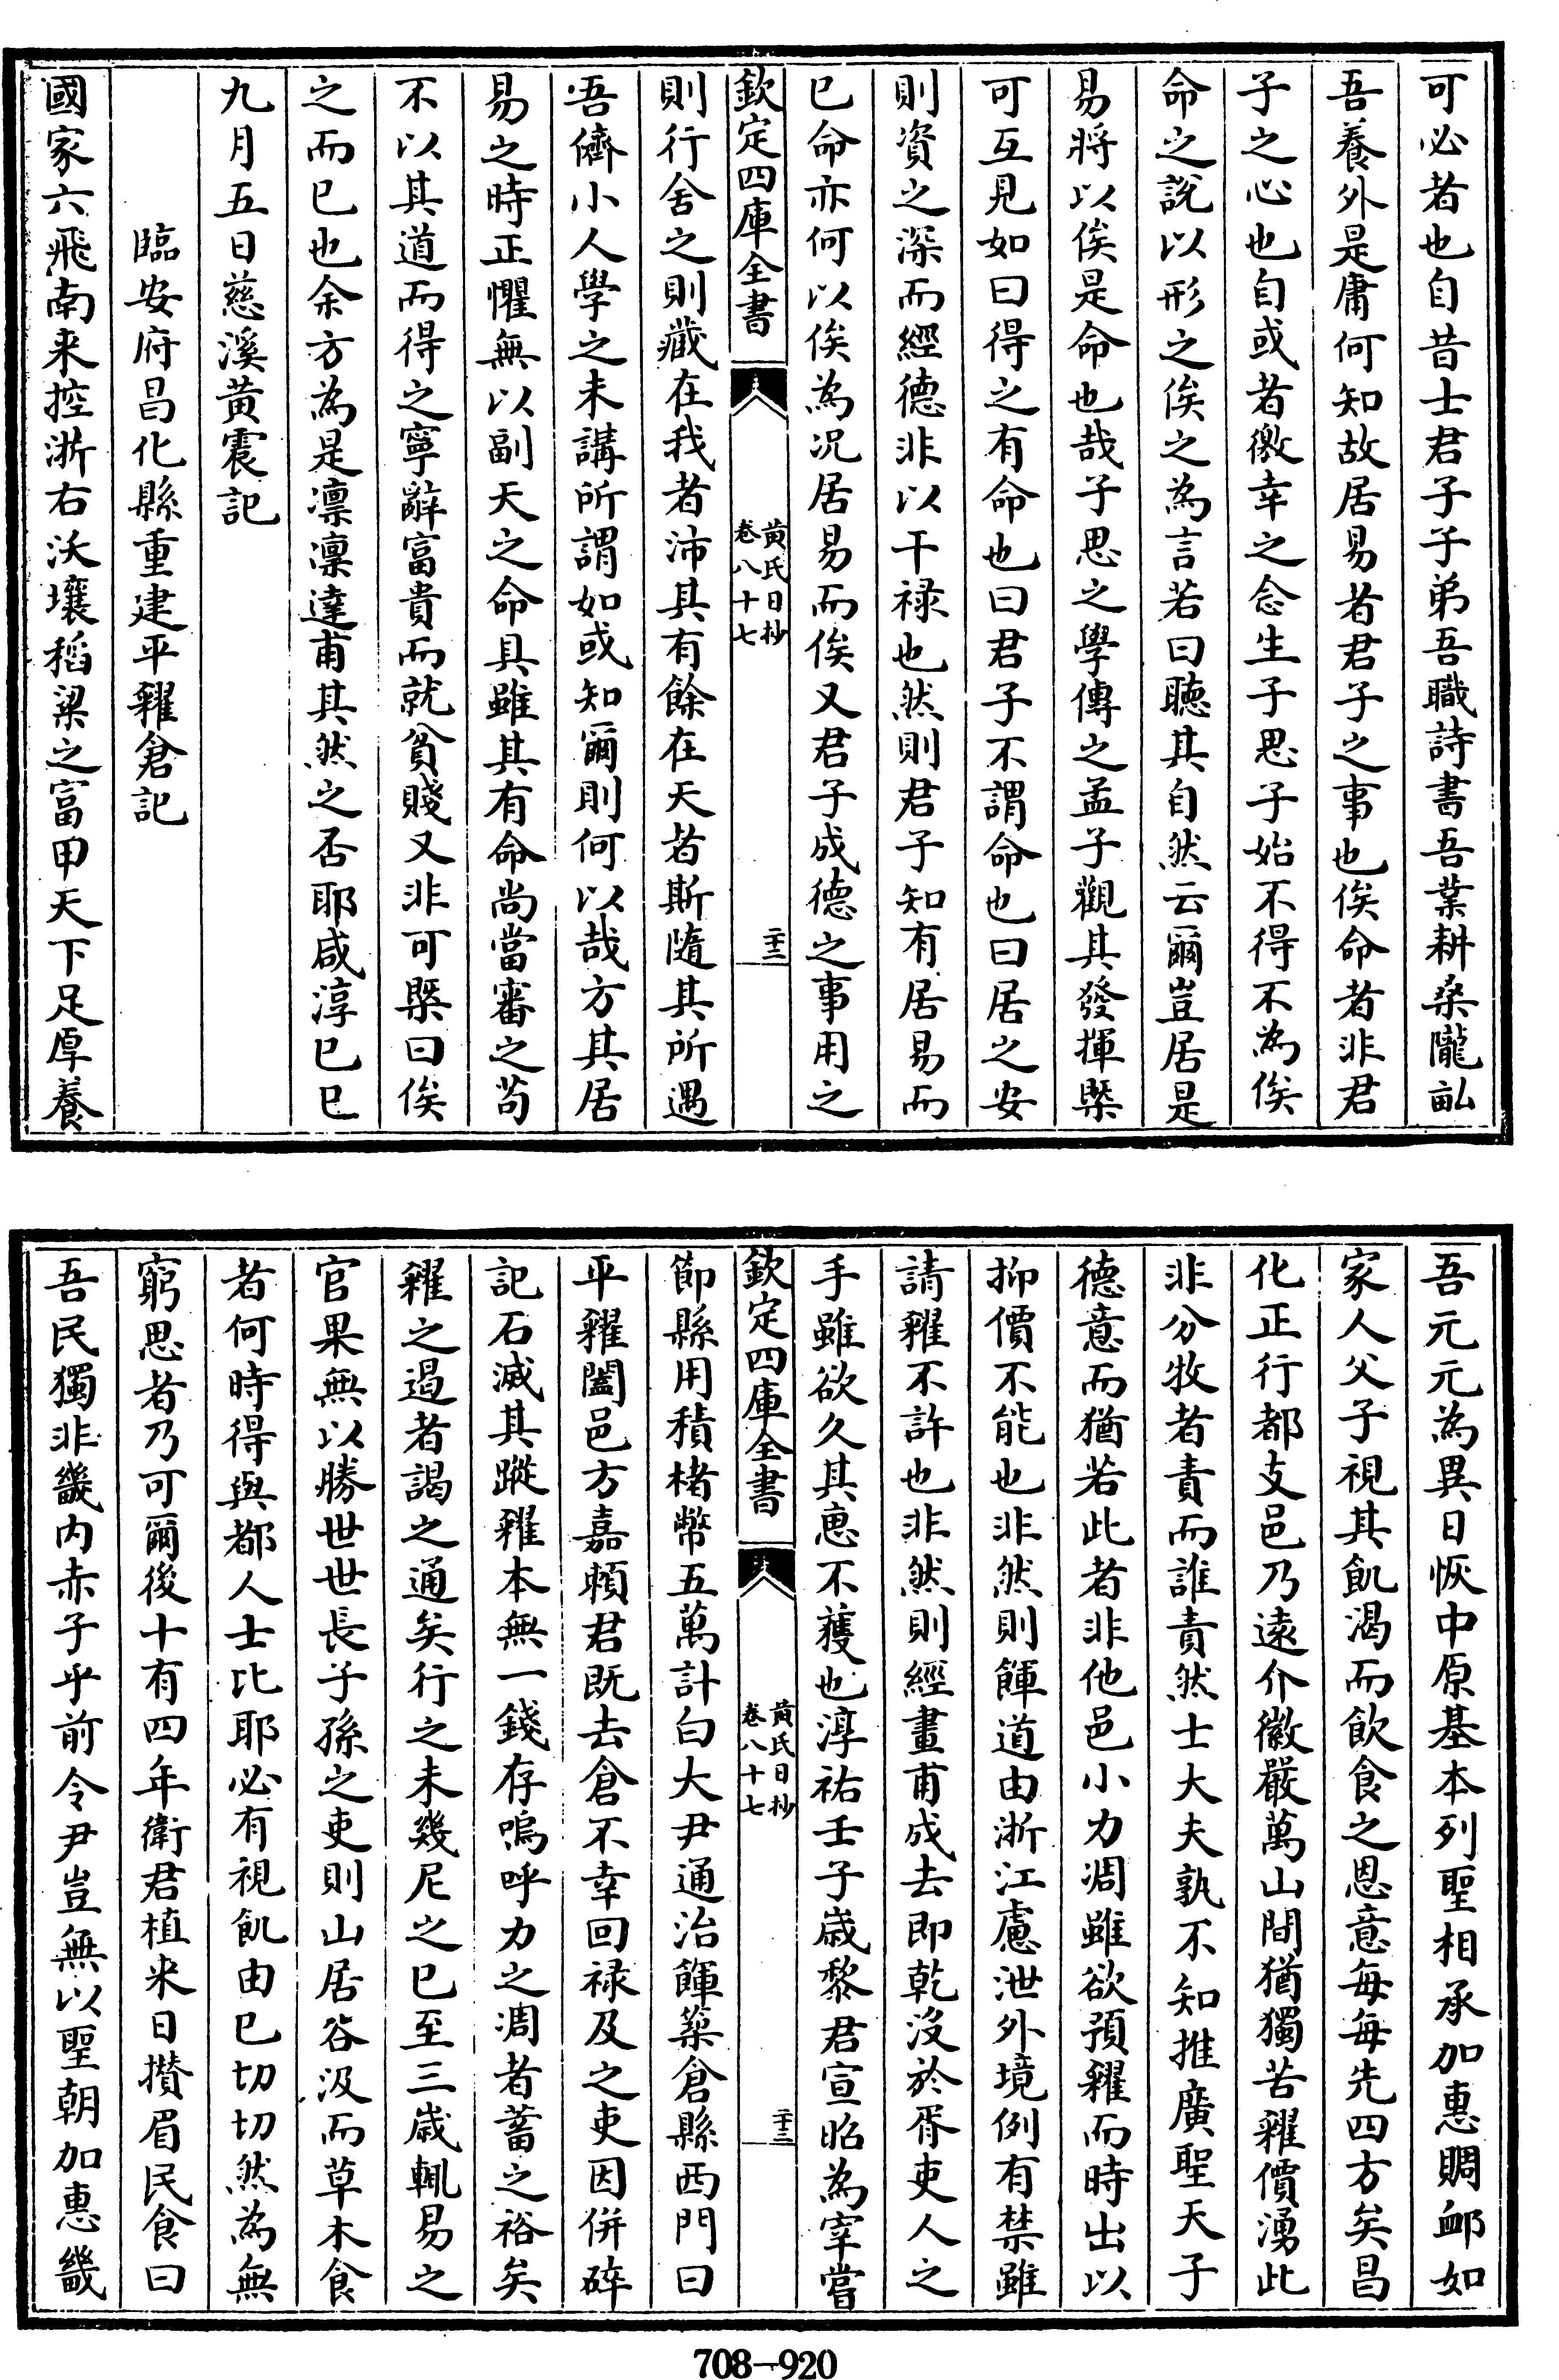 可必者也自昔士君子子弟吾職詩書吾業耕桑隴畝
吾養外是庸何知故居易者君子之事也俟命者非君
子之心也自或者徼幸之念生子思子始不得不為俟
命之說以形之俟之為言若曰聽其自然云爾豈居是
易將以俟是命也哉子思之學傳之孟子觀其發揮槩
可互見如曰得之有命也曰君子不謂命也曰居之安
則資之深而經德非以干祿也然則君子知有居易而
已命亦何以俟為况居易而俟又君子成德之事用之
欽定四庫全書
黃氏日抄
卷八十七
二十二
則行舍之則藏在我者沛其有餘在天者斯隨其所遇
吾儕小人學之未講所謂如或知爾則何以哉方其居
易之時正懼無以副天之命具雖其有命尚當審之苟
不以其道而得之寧辭富貴而就貧賤又非可槩曰俟
之而已也余方為是凛凛達甫其然之否耶咸淳己巳
九月五日慈溪黃震記
臨安府昌化縣重建平糴倉記
國家六飛南来控浙右沃壤稻粱之富甲天下足厚養
吾元元為異日恢中原基本列聖相承加惠賙卹如
家人父子視其飢渴而飲食之恩意每每先四方矣昌
化正行都支邑乃遠介徽嚴萬山間猶獨苦糴價湧此
非分牧者責而誰責然士大夫孰不知推廣聖天子
德意而猶若此者非他邑小力凋雖欲預糴而時出以
抑價不能也非然則餫道由浙江慮泄外境例有禁雖
請糴不許也非然則經畫甫成去即乾沒於胥吏人之
手雖欲久其惠不獲也淳祐壬子歲黎君宣昭為宰嘗
欽定四庫全書
黃氏日抄
卷八十七
二十三
節縣用積楮幣五萬計白大尹通治餫築倉縣西門曰
平糴闔邑方嘉賴君既去倉不幸回祿及之吏因併碎
記石滅其蹤糴本無一錢存嗚呼力之凋者蓄之裕矣
糴之遏者謁之通矣行之未幾尼之已至三歲輒易之
官果無以勝世世長子孫之吏則山居谷汲而草木食
者何時得與都人士比耶必有視飢由已切切然為無
窮思者乃可爾後十有四年衛君植来日攢眉民食曰
吾民獨非畿内赤子乎前令尹豈無以聖朝加惠畿
708—920